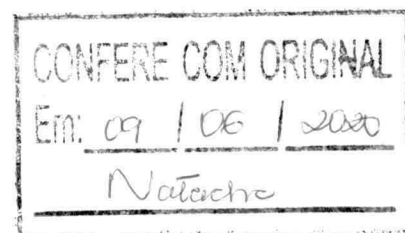 CONFERE COM ORIGINAL
Em: 09 / 06 / 2020
Natache